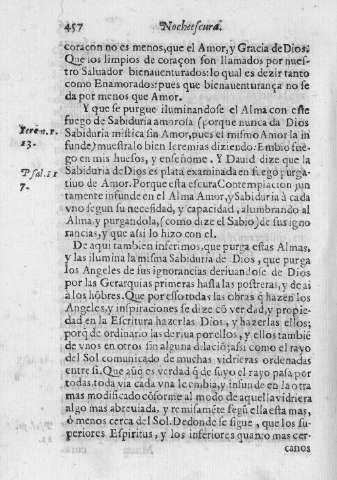 457 Nocheescura.
coraçon no es menos, que el Amor, y Gracia de Dios.
Que los limpios de coraçon son llamados por nues-
tro Saluador bienauenturados: lo qual es dezir tanto
como Enamorados: pues que bienauenturança no se
da por menos que Amor.
Y que se purgue iluminandose el Alma con este
fuego de Sabiduria amorosa (porque nunca da Dios
Sabiduria mistica sin Amor, pues el mismo Amor la in
funde) muestralo bien Ieremias diziendo: Embiò fue-
go en mis huesos, y enseñome. Y Dauid dize que la
Sabiduria de Dios es plata examinada en fuego purga-
tiuo de Amor. Porque esta escura Contemplacion jun
tamente infunde en el Alma Amor, y Sabiduria à cada
vno segun su necesidad, y capacidad, alumbrando al
Alma, y purgandola, (como dize el Sabio) de sus igno
rancias, y que asi lo hizo con el.
De aqui tambien inferimos, que purga estas Almas,
y las ilumina la misma Sabiduria de Dios, que purga
los Angeles de sus ignorancias deriuandose de Dios
por las Gerarquias primeras hasta las postreras, y de ai
a los hõbres. Que por esso todas las obras q̃ hazen los
Angeles, y inspiraciones se dize cõ verdad, y propie-
dad en la Escritura hazerlas Dios, y hazerlas ellos;
porq̃ de ordinario las deriua por ellos, y ellos tambiẽ
de vnos en otros sin alguna dilaciõ; asi como el rayo
del Sol comunicado de muchas vidrieras ordenadas
entre si. Que aũq̃ es verdad q̃ de suyo el rayo pasa por
todas, toda via cada vna le embia, y infunde en la otra
mas modificado cõforme al modo de aquella vidriera
algo mas abreuiada, y remisamẽte segũ ella esta mas,
ò menos cerca del Sol. De donde se sigue, que los su-
periores Espiritus, y los inferiores quanto mas cer-
canos
Ierem. 1.
13.
Psal. 11
7.